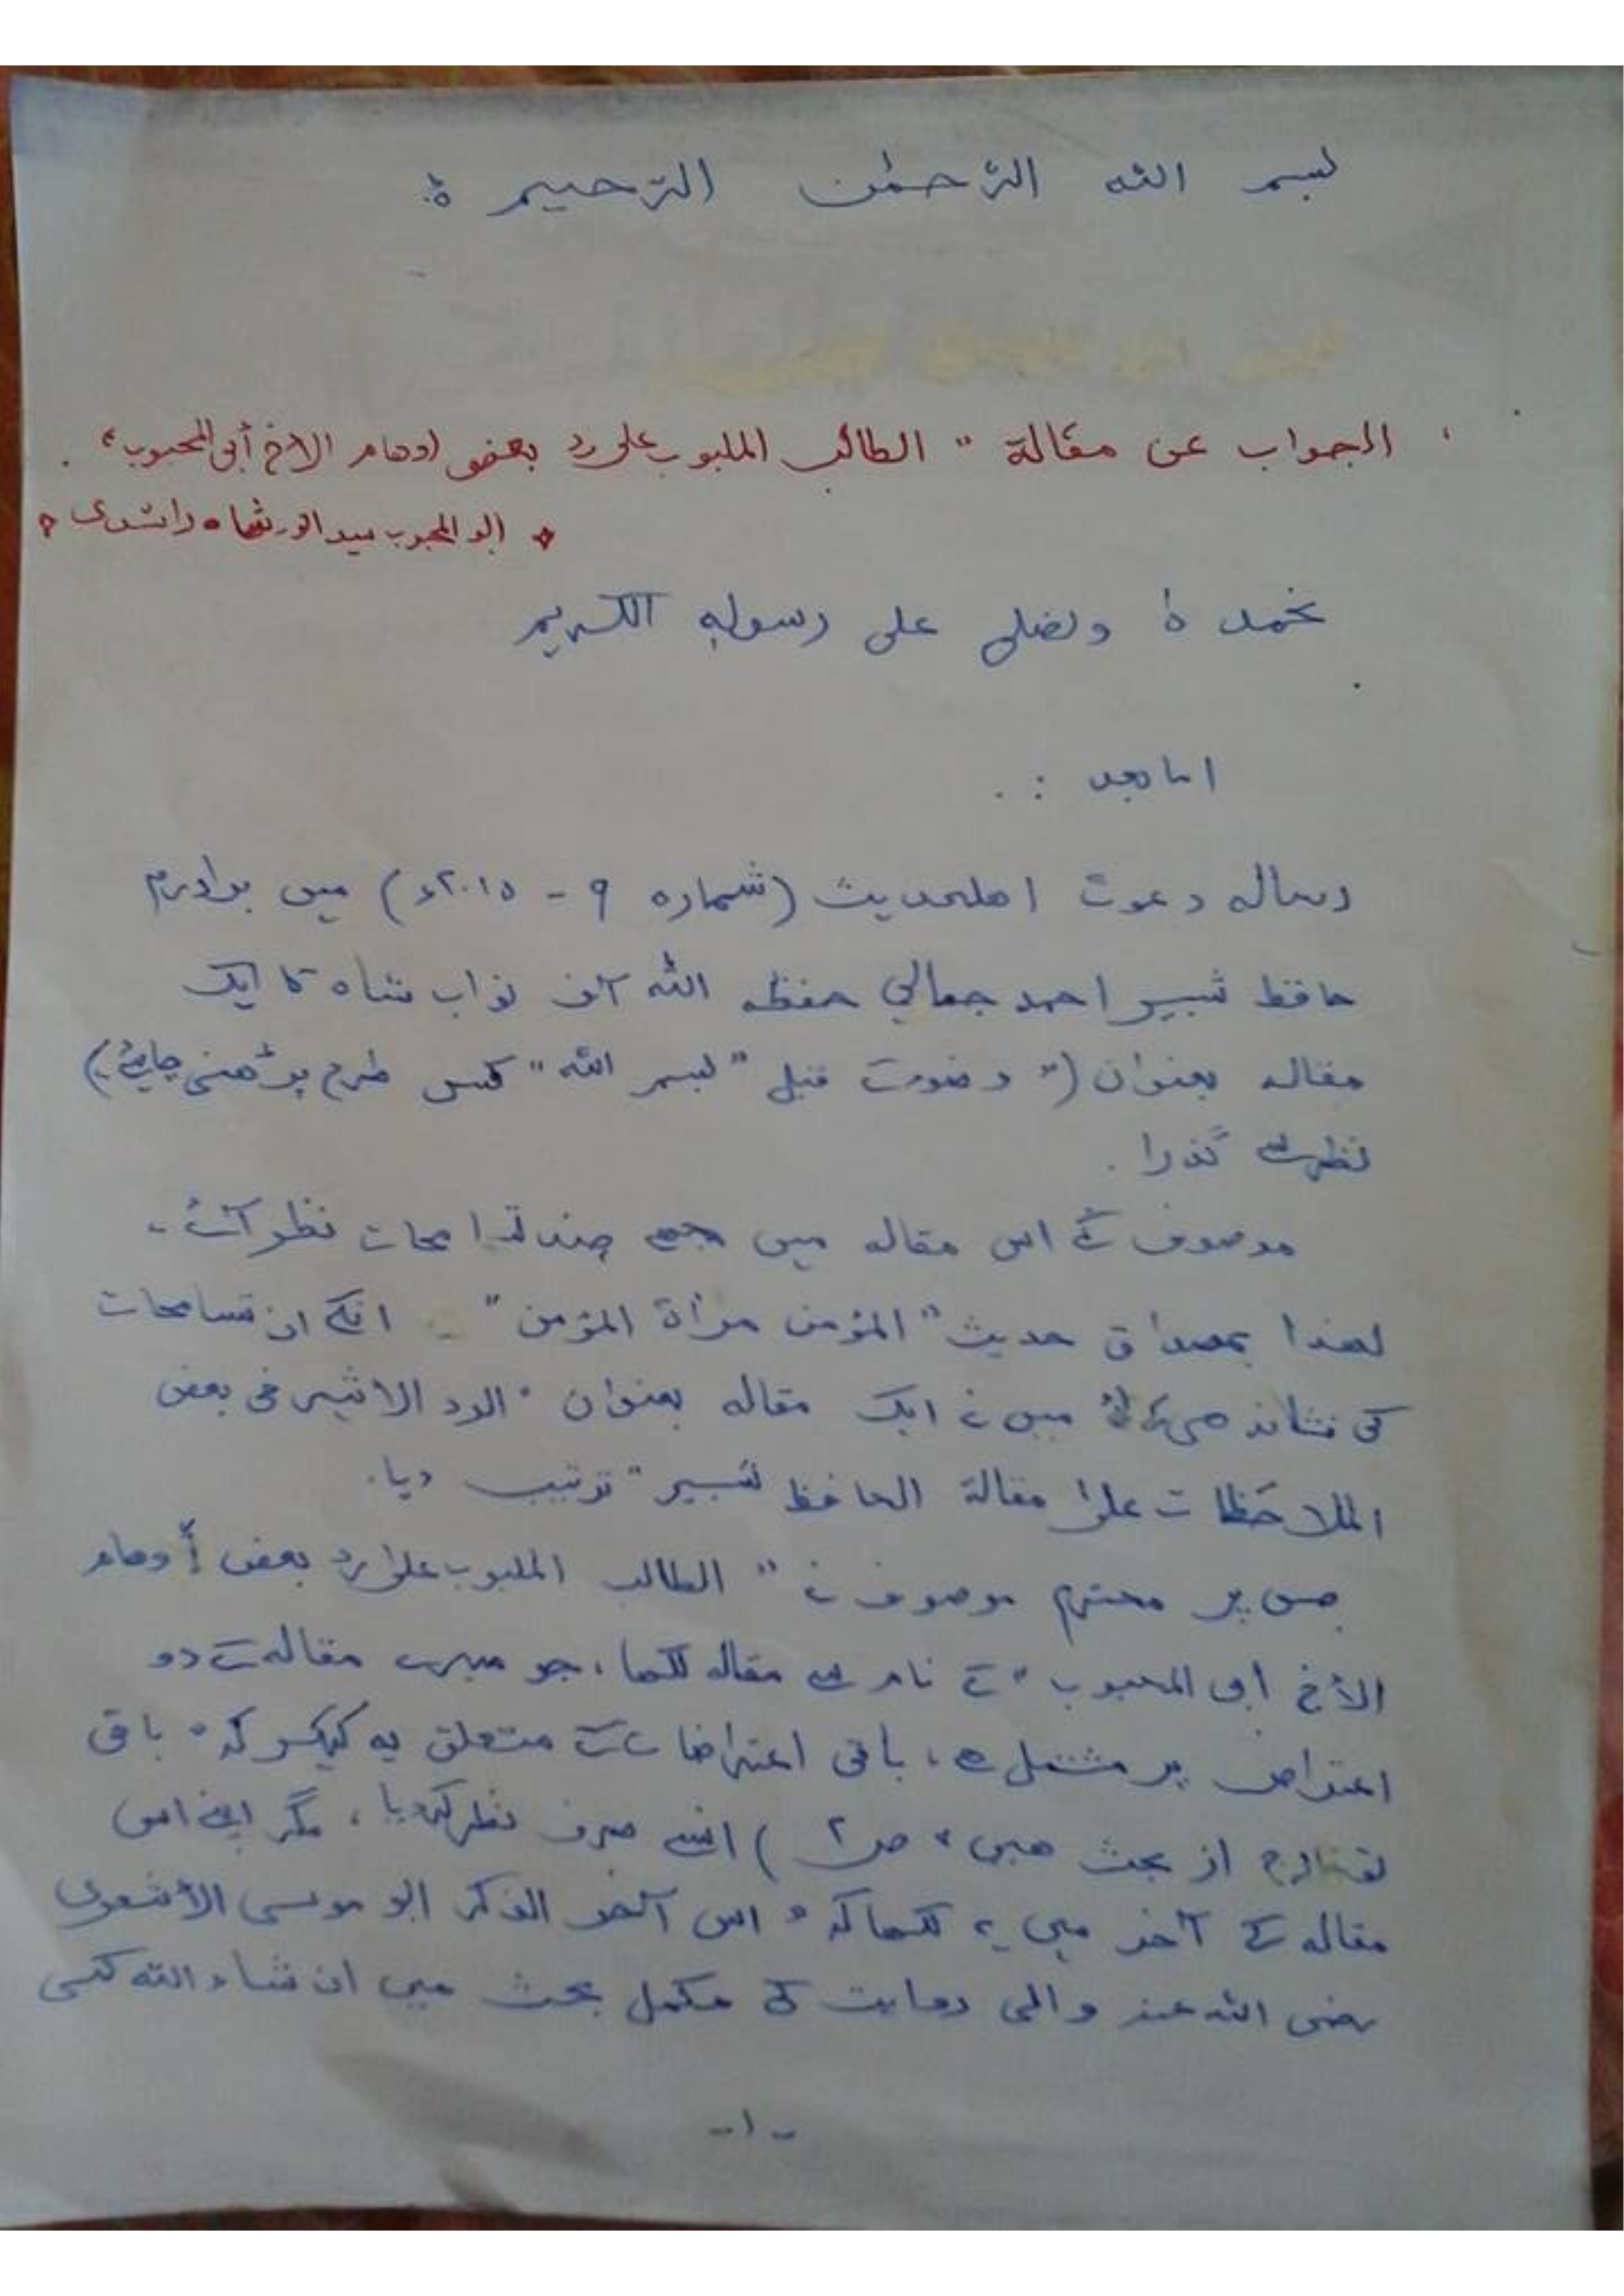 بسم الله الرّحمٰن الرّحیم ۃ
الجواب عن مقالة " الطالب الملبوب علی رد بعض اوهام الاخ أبی المحبوب"
* ابو المحبوب سید انور شاه راشدی *
نحمدہٗ ونصلی علی رسولہٖ الکریم
اما بعد :.
رسالہ دعوت اهلحدیث (شمارہ ۹ - ۲۰۱۵ء) میں برادرم
حافظ شبیر احمد جمالی حفظہ اللہ آف نواب شاہ کا ایک
مقالہ بعنوان (" وضوء سے قبل "بسم اللہ" کس طرح پڑھنی چاہئے)
نظر سے گذرا .
موصوف کے اس مقالہ میں مجھے چند تسامحات نظر آئے ۔
لهذا بمصداق حدیث "المؤمن مرأة المؤمن" ۔ انکے ان تسامحات
کی نشاندهی میں نے ایک مقالہ بعنوان " الرد الاثیر فی بعض
الملاحظات علیٰ مقالة الحافظ شبیر" ترتیب دیا.
جس پر محترم موصوف نے " الطالب الملبوب علیٰ رد بعض أوهام
الأخ أبی المحبوب " کے نام سے مقالہ لکھا، جو میرے مقالہ کے دو
اعتراض پر مشتمل ہے، باقی اعتراضات کے متعلق یہ کہکر کہ " باقی
خارج از بحث هیں " ص ۲ ) انسے صرف نظر کردیا، مگر اپنے اس
مقالہ کے آخر میں یہ لکھا کہ " اس آخر الذکر ابو موسی الأشعری
رضی اللہ عنہ والی روایت کے مکمل بحث میں ان شاء اللہ کسی
-۱-